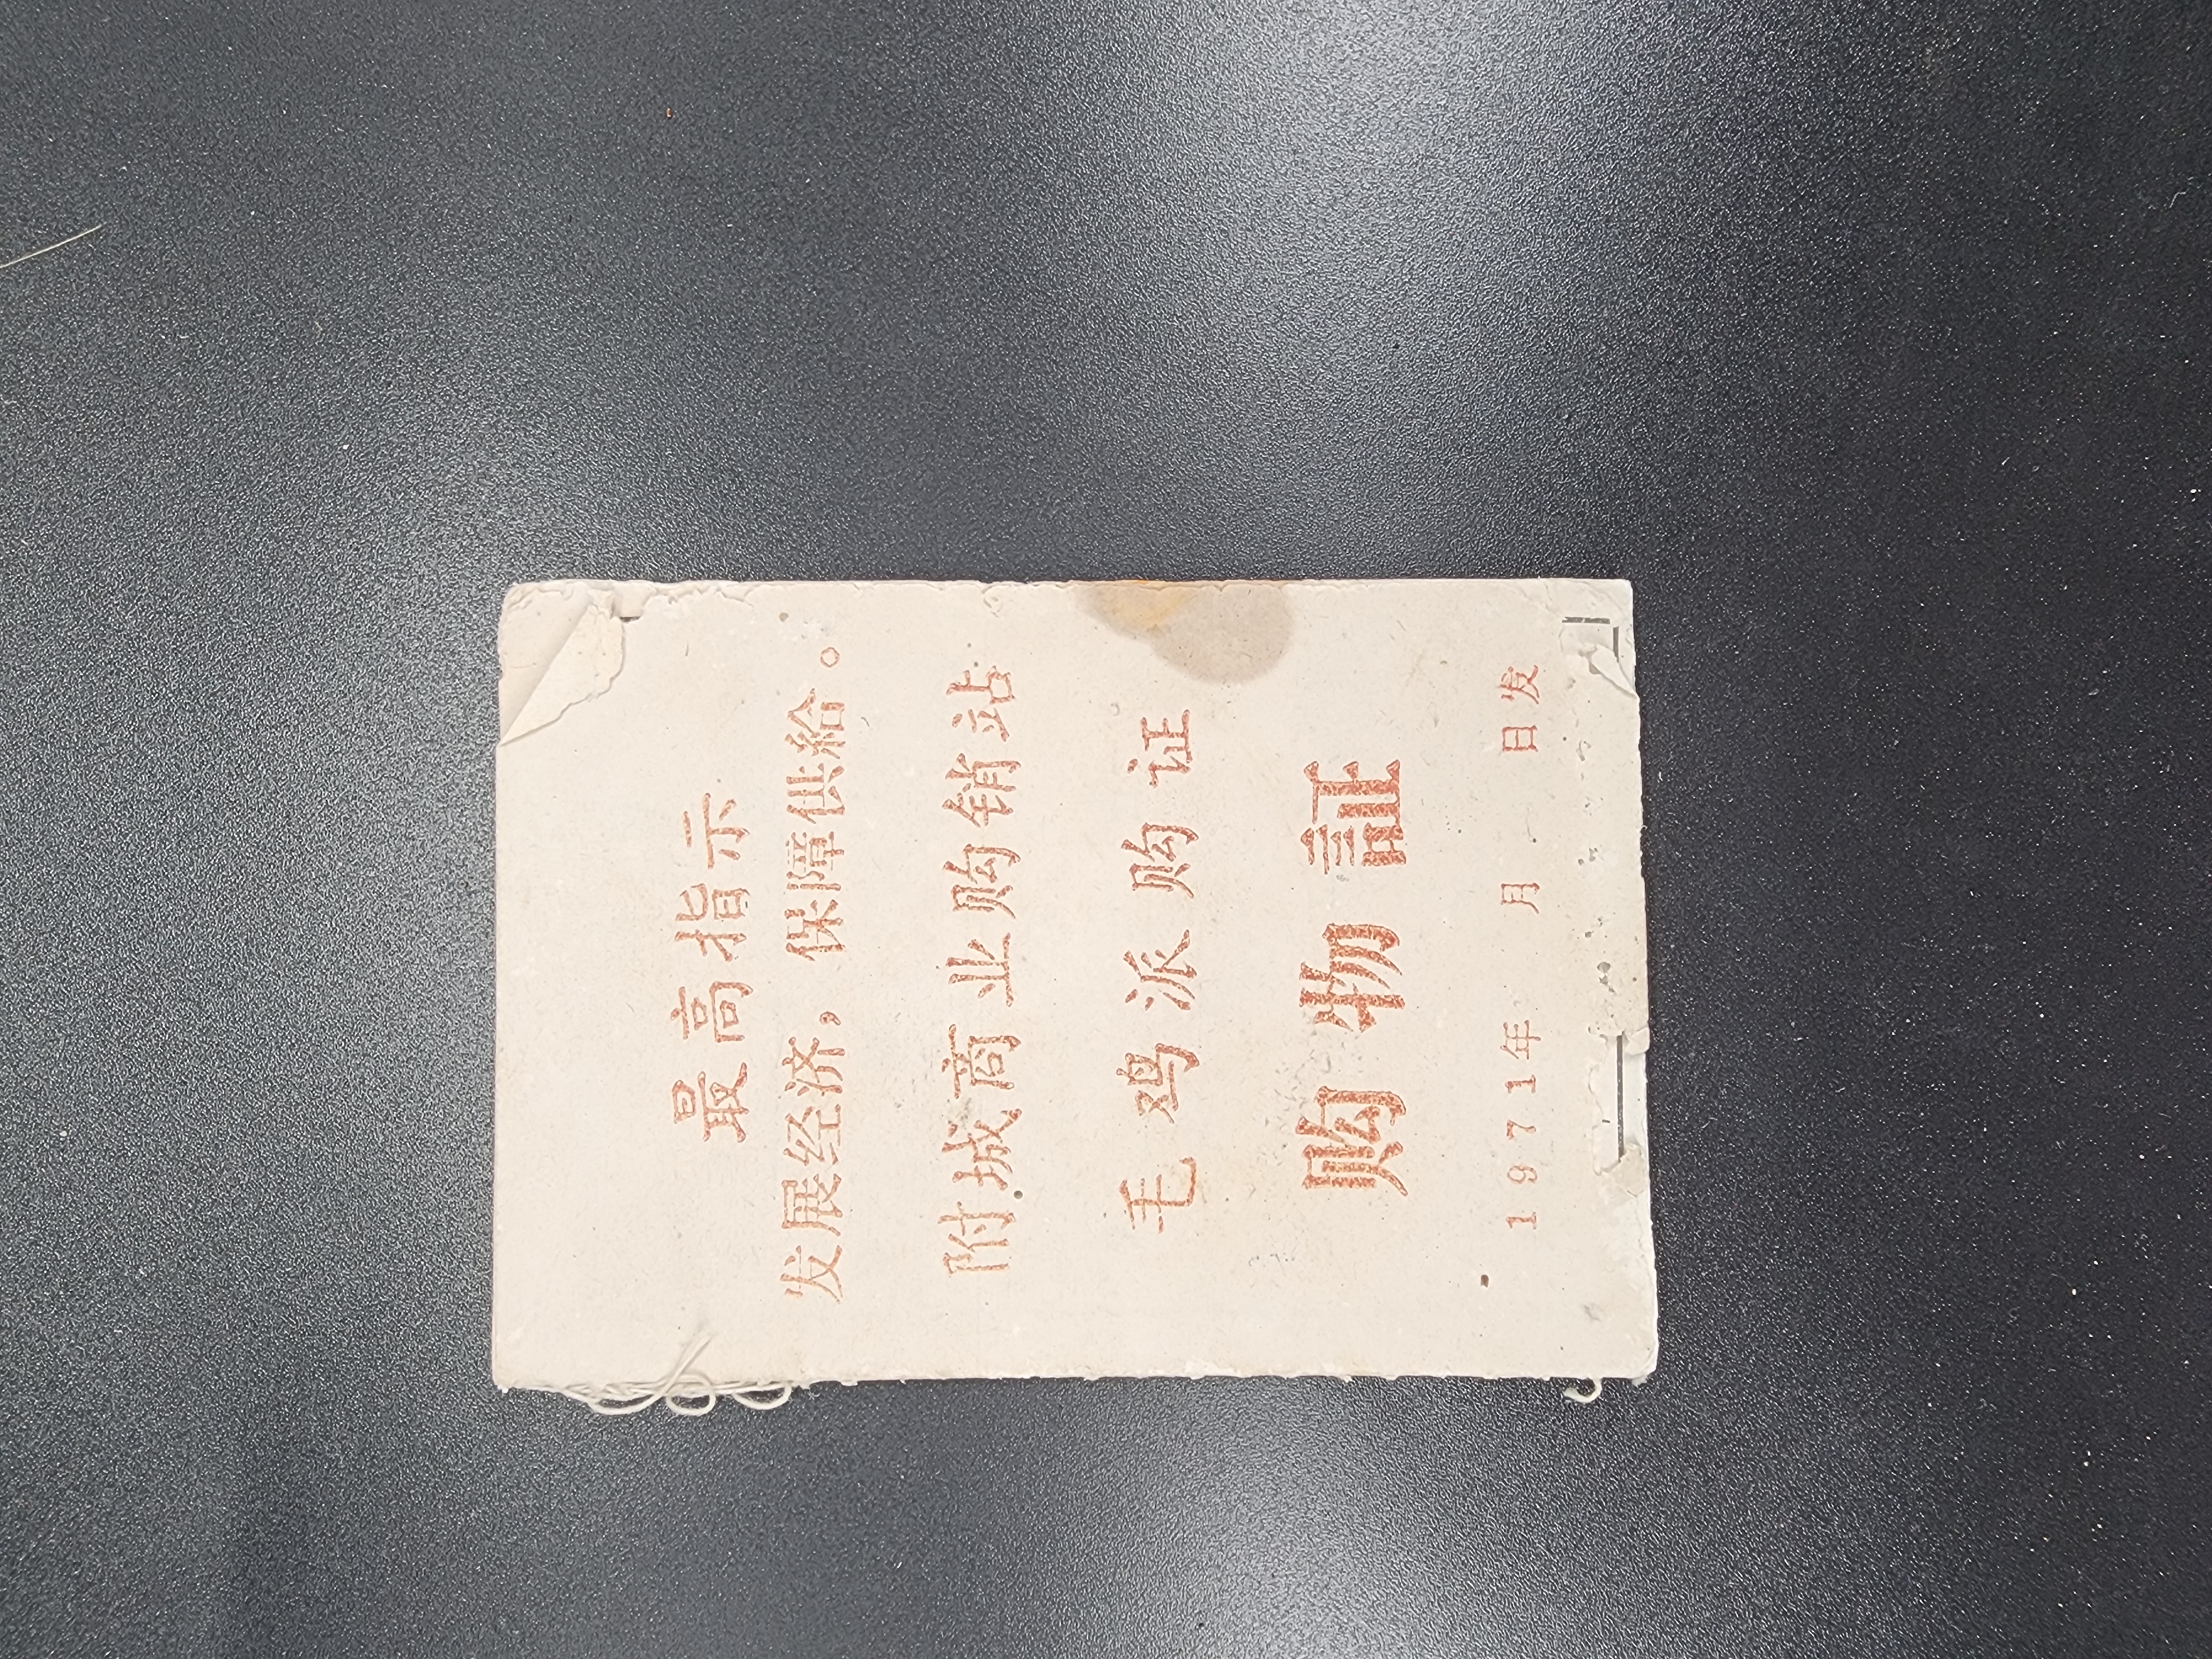 最高指示
发展经济，保障供给。
附城商业购销站
毛鸡派购证
购物証
1971年 月 日发